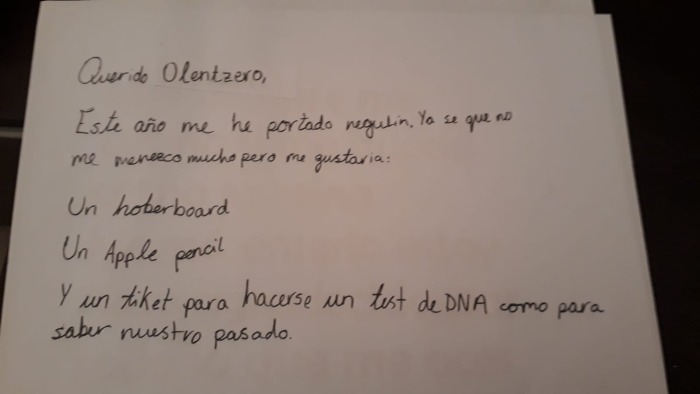 Querido Olentzero,
Este año me he portado regulin. Ya se que no
me merezco mucho pero me gustaria:
Un hoberboard
Un Apple pencil
Y un tiket para hacerse un test de DNA como para
saber nuestro pasado.